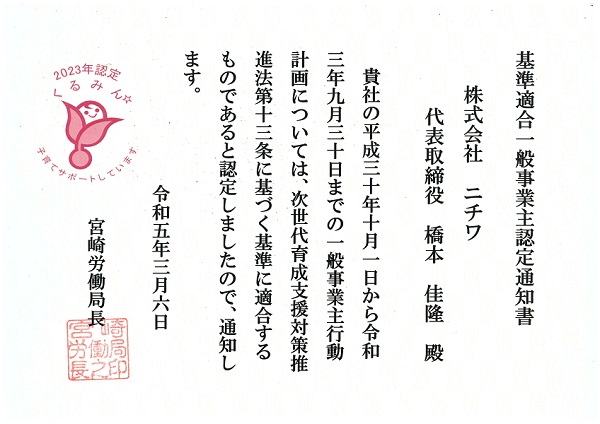 基準適合一般事業主認定通知書
株式会社 ニチワ
代表取締役 橋本 佳隆 殿
貴社の平成三十年十月一日から令和
三年九月三十日までの一般事業主行動
計画については、次世代育成支援対策推
進法第十三条に基づく基準に適合する
ものであると認定しましたので、通知し
ます。
令和五年三月六日
宮崎労働局長
宮崎労働局長之印
2023年認定
くるみん☆
子育てサポートしています